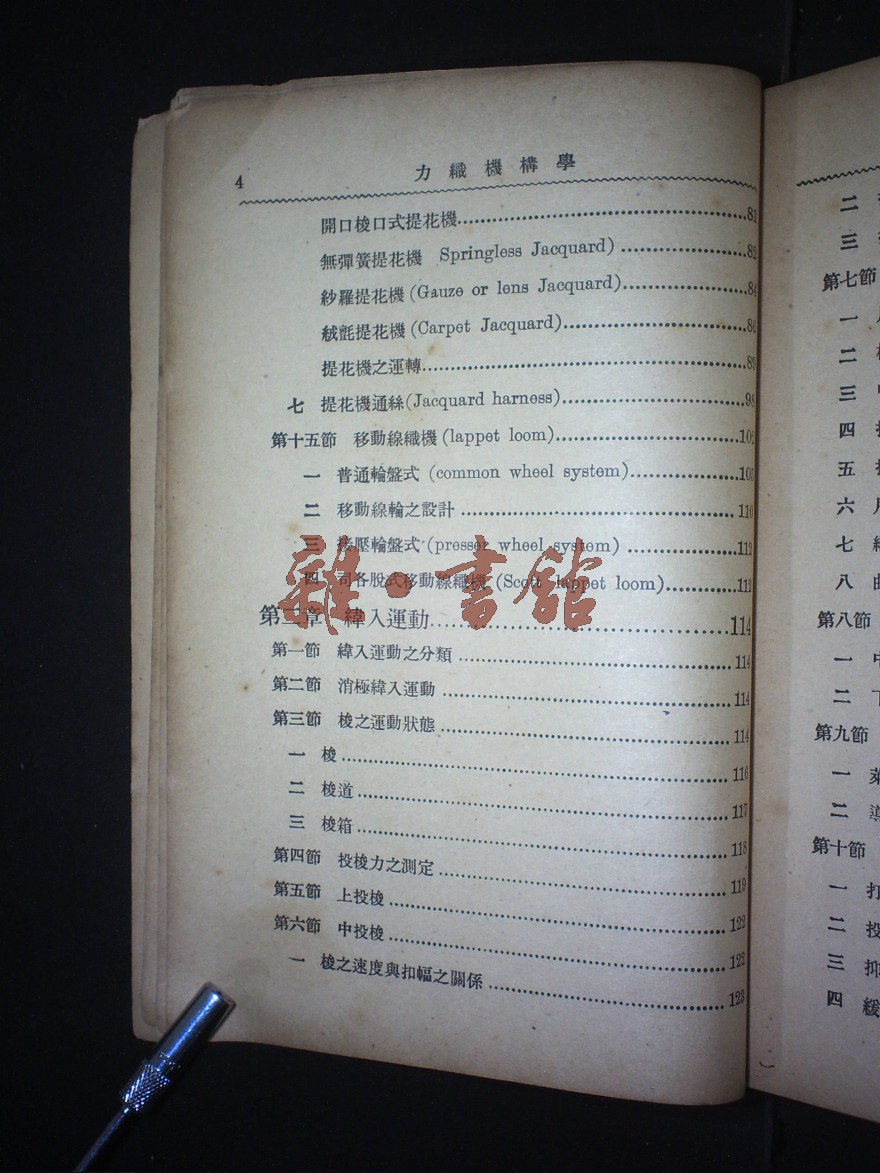 4
力織機構學
開口梭口式提花機 81
無彈簧提花機 Springless Jacquard) 82
紗羅提花機 (Gauze or lens Jacquard) 84
絨氈提花機 (Carpet Jacquard) 86
提花機之運轉 89
七 提花機通絲 (Jacquard harness) 98
第十五節 移動線織機 (lappet loom) 102
一 普通輪盤式 (common wheel system) 105
二 移動線輪之設計 110
三 按壓輪盤式 (presser wheel system) 112
四 司各股式移動線織機 (Scott lappet loom) 112
第三章 緯入運動 114
第一節 緯入運動之分類 114
第二節 消極緯入運動 114
第三節 梭之運動狀態 114
一 梭 116
二 梭道 117
三 梭箱 118
第四節 投梭力之測定 119
第五節 上投梭 122
第六節 中投梭 122
一 梭之速度與扣幅之關係 123
雜·書館
二
三
第七節
一
二
三
四
五
六
七
八
第八節
一
二
第九節
一
二
第十節
一
二
三
四